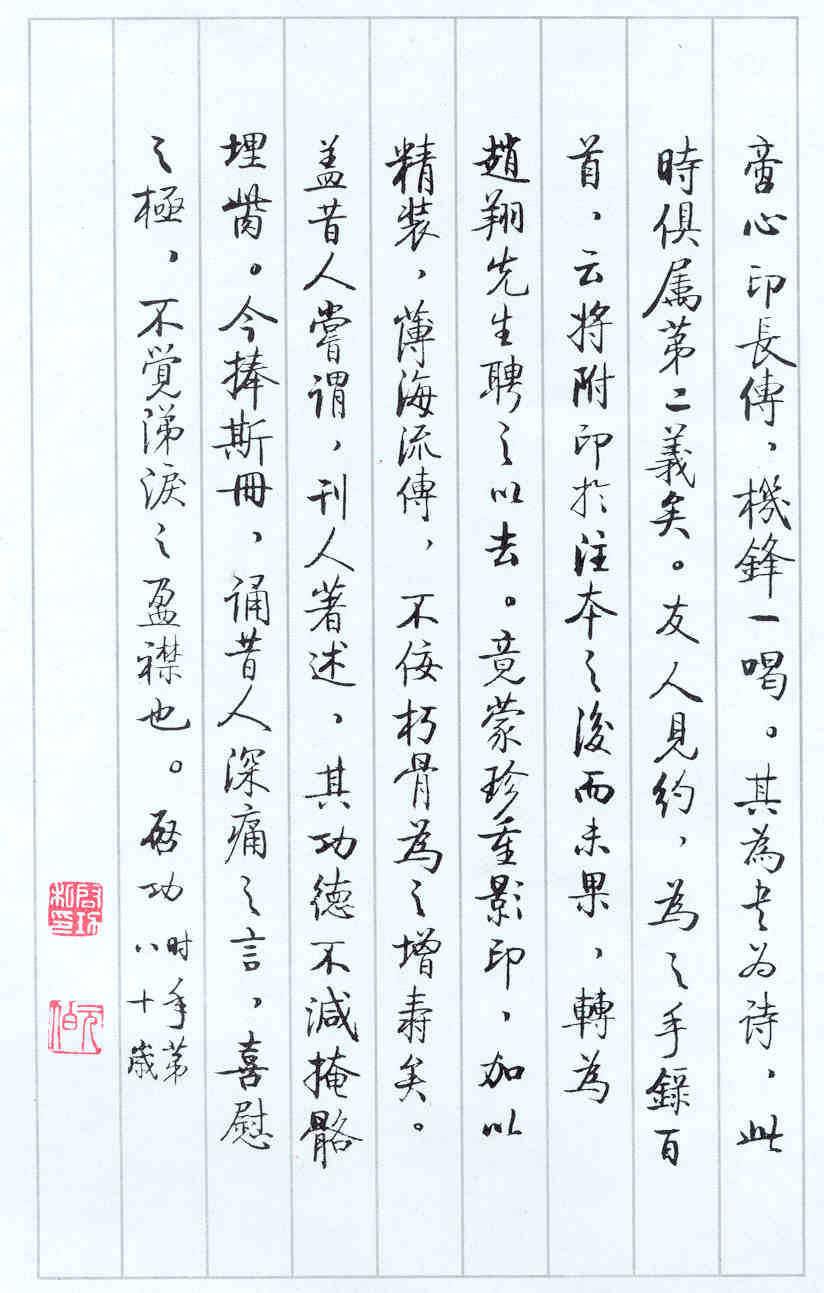 壺心印長傳，機鋒一喝。其為書為詩，此
時俱属第二義矣。友人見約，為之手錄百
首，云将附印於注本之後而未果，轉為
趙翔先生聘之以去。竟蒙珍重影印，加以
精装，薄海流傳，不佞朽骨為之增壽矣。
盖昔人嘗謂，刊人著述，其功德不減掩骼
埋胔。今捧斯冊，誦昔人深痛之言，喜慰
之極，不覺涕淚之盈襟也。啓功
時年第
八十歲
啓功
私印
元伯